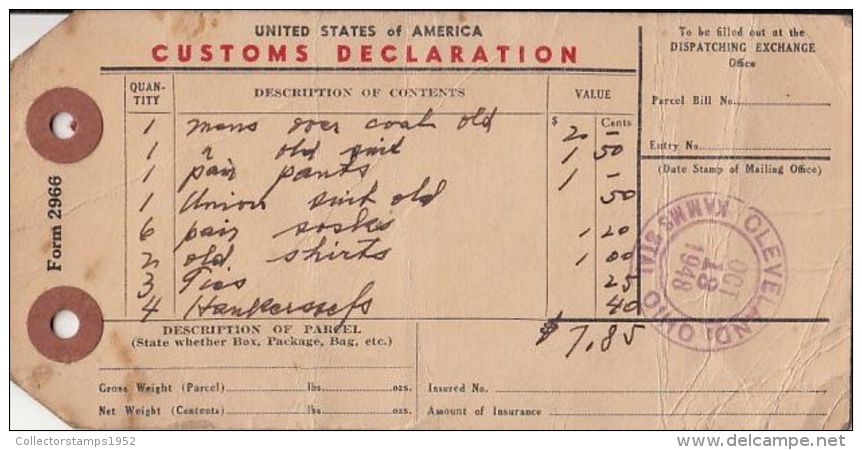 UNITED STATES of AMERICA
CUSTOMS DECLARATION
QUAN-
TITY
DESCRIPTION OF CONTENTS
VALUE
$ Cents
1 mens over coat old 2 –
1 " old suit 1 50
1 pair pants 1 –
1 Union suit old 50
6 pair socks 1 20
2 old shirts 1 00
3 Ties 25
4 Hankerseefs 40
$ 7.85
Form 2966
DESCRIPTION OF PARCEL
(State whether Box, Package, Bag, etc.)
Gross Weight (Parcel) lbs. ozs.
Net Weight (Contents) lbs. ozs.
Insured No.
Amount of Insurance
To be filled out at the
DISPATCHING EXCHANGE
Office
Parcel Bill No.
Entry No.
(Date Stamp of Mailing Office)
CLEVELAND, OHIO
KAMMS STA.
OCT
18
1948
Collectorstamps1952
delcampe.net